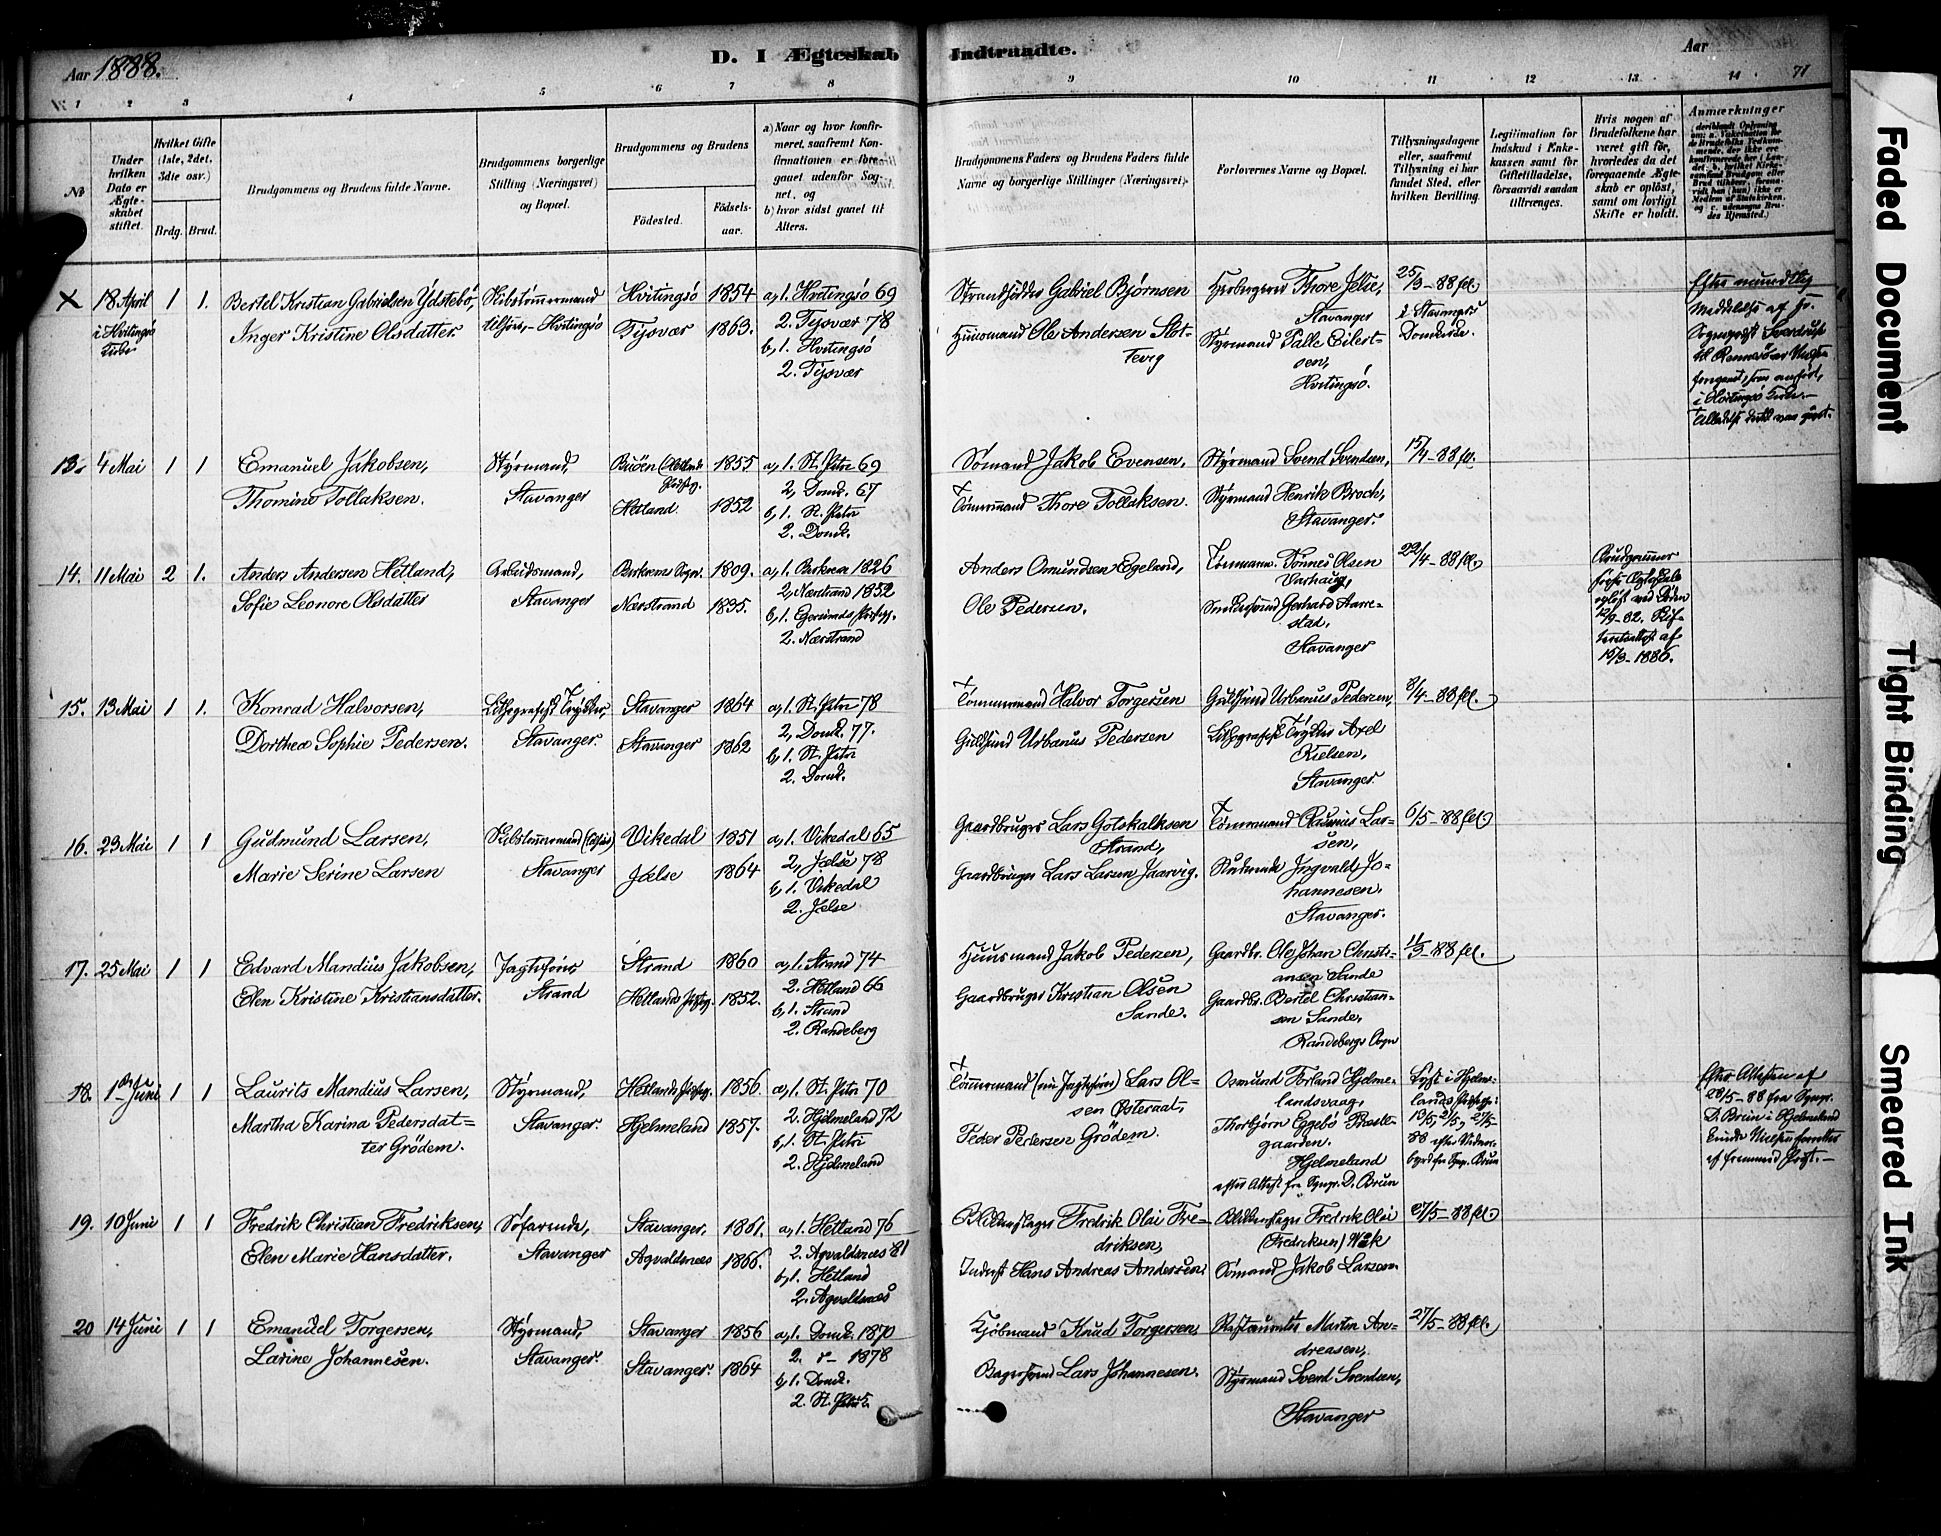 Aar 1888.
D. I Ægteskab Indtraadte.
Aar
71
1 2 3 4 5 6 7 8 9 10 11 12 13 14
No
Under hvilken Dato er Ægteskabet stiftet.
Hvilket Gifte (1ste, 2det, 3die osv.)
Brdg. Brud.
Brudgommens og Brudens fulde Navne.
Brudgommens borgerlige Stilling (Næringsvei) og Bopæl.
Brudgommens og Brudens
Födested.
Födselsaar.
a) Naar og hvor konfirmeret, saafremt Konfirmationen er foregaaet udenfor Sognet, og
b) hvor sidst gaaet til Alters.
Brudgommens Faders og Brudens Faders fulde Navne og borgerlige Stillinger (Næringsvei).
Forlovernes Navne og Bopæl.
Tillysningsdagene eller, saafremt Tillysning ei har fundet Sted, efter hvilken Bevilling.
Legitimation for Indskud i Enkekassen samt for Giftetilladelse, forsaavidt saadan tiltrænges.
Hvis nogen af Brudefolkene har været gift før, hvorledes da det foregaaende Ægteskab er oplöst, samt om lovligt Skifte er holdt.
Anmærkninger
X 18 April 1 1.
i Hvitingsö Kirke
Bertel Kristian Gabrielsen Ydstebö,
Inger Kristine Olsdatter.
Skibstømmermand
tilsjøs,- Hvitingsö
Hvitingsö 1854
Tysvær 1863.
a, 1. Hvitingsö 69
2. Tysvær 78
b, 1. Hvitingsö
2. Tysvær
Strandsidder Gabriel Bjørnsen
Huusmand Ole Andersen Slottevig
Thore Jelse,
Stavanger
Styrmand Palle Eilertsen,
Hvitingsö.
25/3-88 fl.
i Stavanger Domkirke.
Efter mundtlig
Meddelelse af Hr.
13. 4 Mai 1 1
Emanuel Jakobsen,
Thomine Tollaksen.
Styrmand,
Stavanger
Buöen (Hetland Prstg.) 1855
Hetland. 1852
a, 1. St. Petri 69
2, Domk. 67
b, 1. St. Petri
2. Domk.
Sømand Jakob Evensen,
Tømmermand Thore Tollaksen.
Styrmand Svend Svendsen,
Styrmand Henrik Broch,
Stavanger.
15/4-88 fl.
14. 11 Mai 2 1.
Anders Andersen Hetland,
Sofie Leonore Olsdatter
Arbeidsmand,
Stavanger
Birkrem Sogn. 1809.
Nærstrand 1835.
a, 1. Birkrem 1826
2, Nærstrand 1852
b, 1. Egersunds Prstgj.
2. Nærstrand
Anders Osmundsen Egeland,
Ole Pedersen.
Tømmerm. Tönnes Olsen
Varhaug,
Smedesvend Gerhard Aarrestad,
Stavanger
22/4-88 fl.
Brudgommens
første Ægteskab
opløst ved Döden
12/9-82. Skifteretsattest af
15/3-1886.
15. 13 Mai 1 1.
Konrad Halvorsen,
Dorthea Sophie Pedersen.
Lithografisk Trykker,
Stavanger.
Stavanger 1864
Stavanger 1862
a, 1. St. Petri 78
2, Domk. 77.
b, 1. St. Petri
2. Domk.
Tømmermand Halvor Torgersen
Guldsmed Urbanus Pedersen
Guldsmed Urbanus Pedersen,
Lithografisk Trykker Axel
Nielsen,
Stavanger.
8/4-88 fl.
16. 23 Mai 1 1
Gudmund Larsen,
Marie Serine Larsen
Skibstømmermand (tilsjøs)
Stavanger
Vikedal 1851
Jælse 1864
a, 1. Vikedal 65
2, Jælse 78
b, 1. Vikedal
2. Jælse
Gaardbruger Lars Gotskalksen
Strand,
Gaardbruger Lars Larsen Jaarvig.
Tømmermand Rasmus Larsen,
Ingvald Johannesen.
Stavanger.
6/5-88 fl.
17. 25 Mai 1 1
Edvard Mandius Jakobsen,
Elen Kristine Kristiansdatter.
Jagtefører,
Strand
Strand 1860
Hetlands Prstgj. 1852.
a, 1. Strand 74
2. Hetland 66
b, 1. Strand
2. Randeberg
Huusmand Jakob Pedersen,
Gaardbruger Kristian Olsen
Sande.
Gaardbr. Ole Johan Christiansen Sande
Gaardbr. Bertel Christiansen Sande,
Randebergs Sogn
11/3-88 fl.
18. 1ste Juni 1 1
Laurits Mandius Larsen,
Martha Karina Pedersdatter Grödem.
Styrmand,
Stavanger.
Hetlands Prstgj. 1856.
Hjelmeland 1857.
a, 1. St. Petri 70
2. Hjelmeland 72
b, 1. St. Petri
2. Hjelmeland
Tømmermand (nu Jagtefører) Lars Olsen Østeraat,
Peder Pedersen Grödem.
Osmund Forland Hjelmelandsvaag,
Thorbjörn Eggebö Præstegaarden.
Hjelmeland
efter Attest fra Sogpr. D. Brun
Lyst i Hjelmelands Præstegj.
13/5, 21/5, 27/5-
88 efter Vidnesbyrd fra Sogpr. Brun
Efter Attest af
28/5-88 fra Sogpr.
D. Brun i Hjelmeland
19. 10 Juni 1 1
Fredrik Christian Fredriksen,
Elen Marie Hansdatter.
Søfarende,
Stavanger
Stavanger, 1861.
Agvaldsnes 1866.
a, 1. Hetland 76
2. Agvaldsnæs 81
b, 1. Hetland
2. Agvaldsnæs
Blikkenslager Fredrik Olai Fredriksen,
Inderst Hans Andreas Andersen
Blikkenslager Fredrik Olai
(Fredriksen) Wiik
Sømand Jakob Larsen
27/5-88 fl.
20 14 Juni 1 1
Emanuel Torgersen,
Larine Johannesen.
Styrmand,
Stavanger.
Stavanger 1856
Stavanger. 1864
a, 1. Domk. 1870
2. — 1878
b, 1. Domk.
2. St. Petri.
Kjöbmand Knud Torgersen,
Bagersvend Lars Johannesen.
Martin Andreasen,
Styrmand Svend Svendsen,
Stavanger
27/5-88 fl.
Faded Document
Tight Binding
Smeared Ink